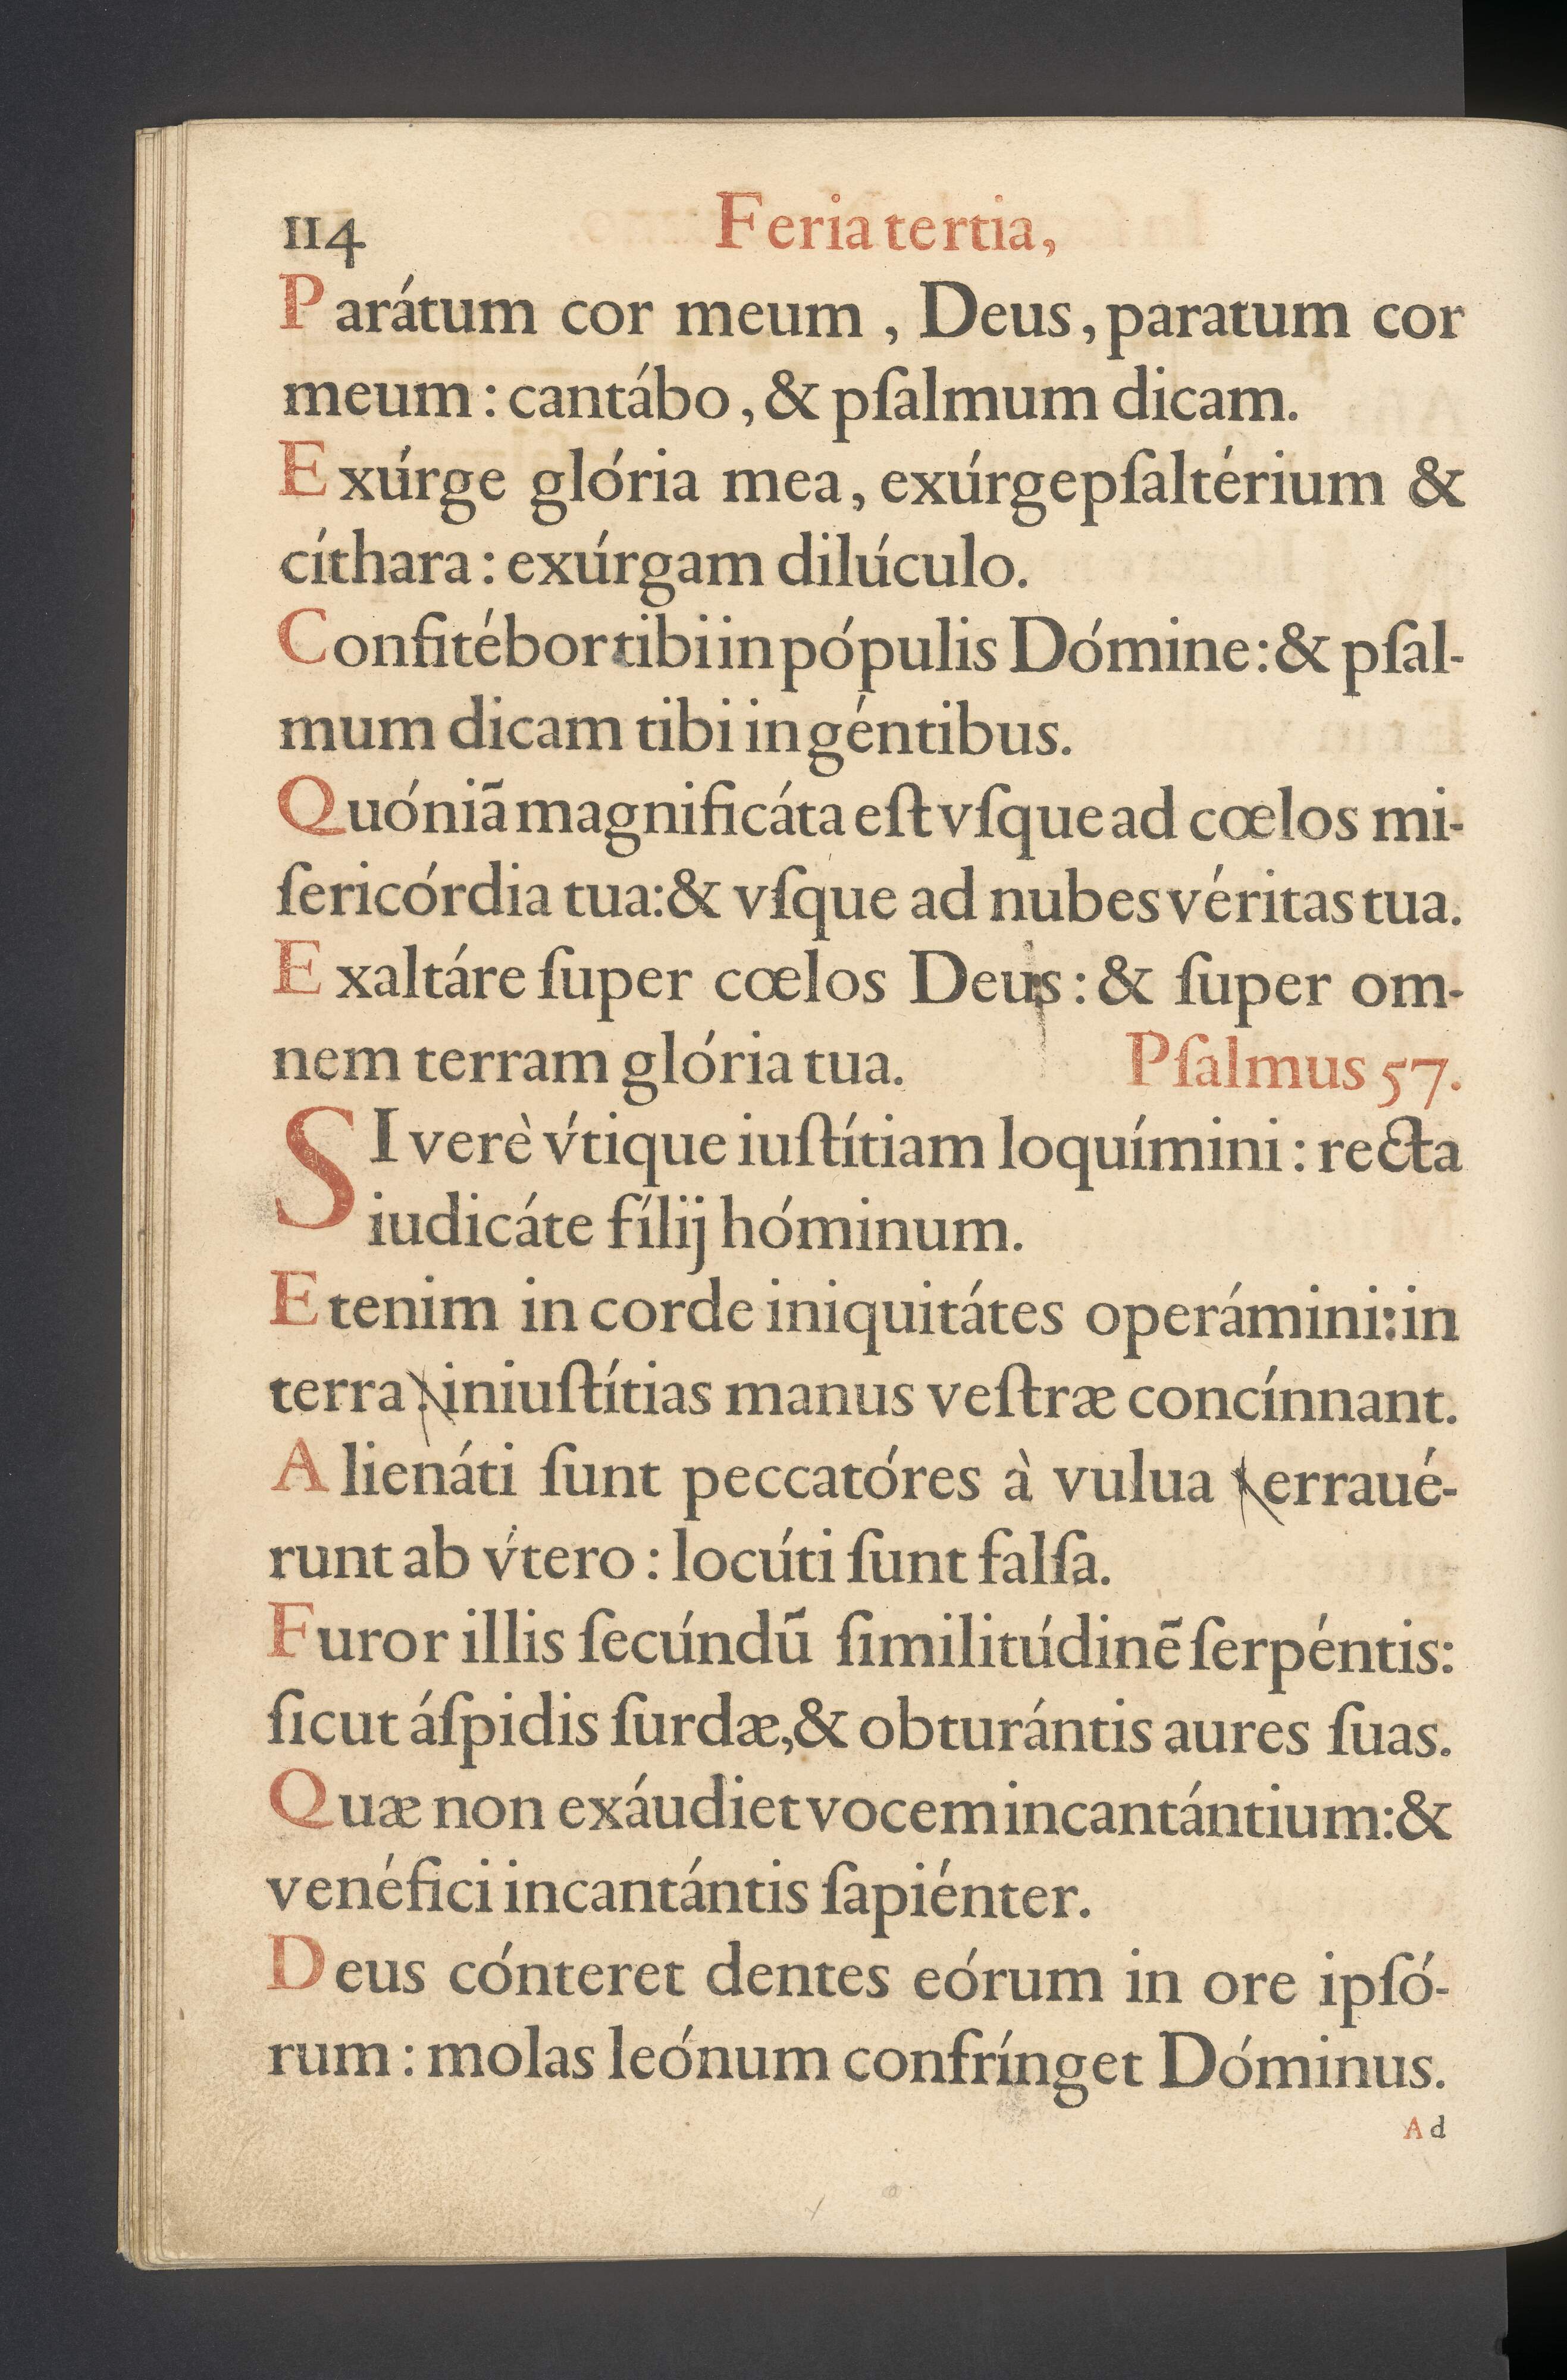 114 Feria tertia,
Parátum cor meum , Deus, paratum cor
meum : cantábo, & pſalmum dicam.
Exúrge glória mea, exúrgepſaltérium &
cíthara : exúrgam dilúculo.
Confitébor tibi in pópulis Dómine: & pſal-
mum dicam tibi in géntibus.
Quóniã magnificáta eſt vſque ad cœlos mi-
ſericórdia tua:& vſque ad nubes véritas tua.
Exaltáre ſuper cœlos Deus : & ſuper om-
nem terram glória tua. Pſalmus 57.
SI verè v́tique iuſtítiam loquímini : recta
iudicáte fílij hóminum.
Etenim in corde iniquitátes operámini: in
terra : iniuſtítias manus veſtræ concínnant.
Alienáti ſunt peccatóres à vulua : erraué-
runt ab v́tero : locúti ſunt falſa.
Furor illis ſecúndũ ſimilitúdinẽ ſerpéntis:
ſicut áſpidis ſurdæ,& obturántis aures ſuas.
Quæ non exáudiet vocem incantántium:&
venéfici incantántis ſapiénter.
Deus cónteret dentes eórum in ore ipſó-
rum : molas leónum confrínget Dóminus.
Ad